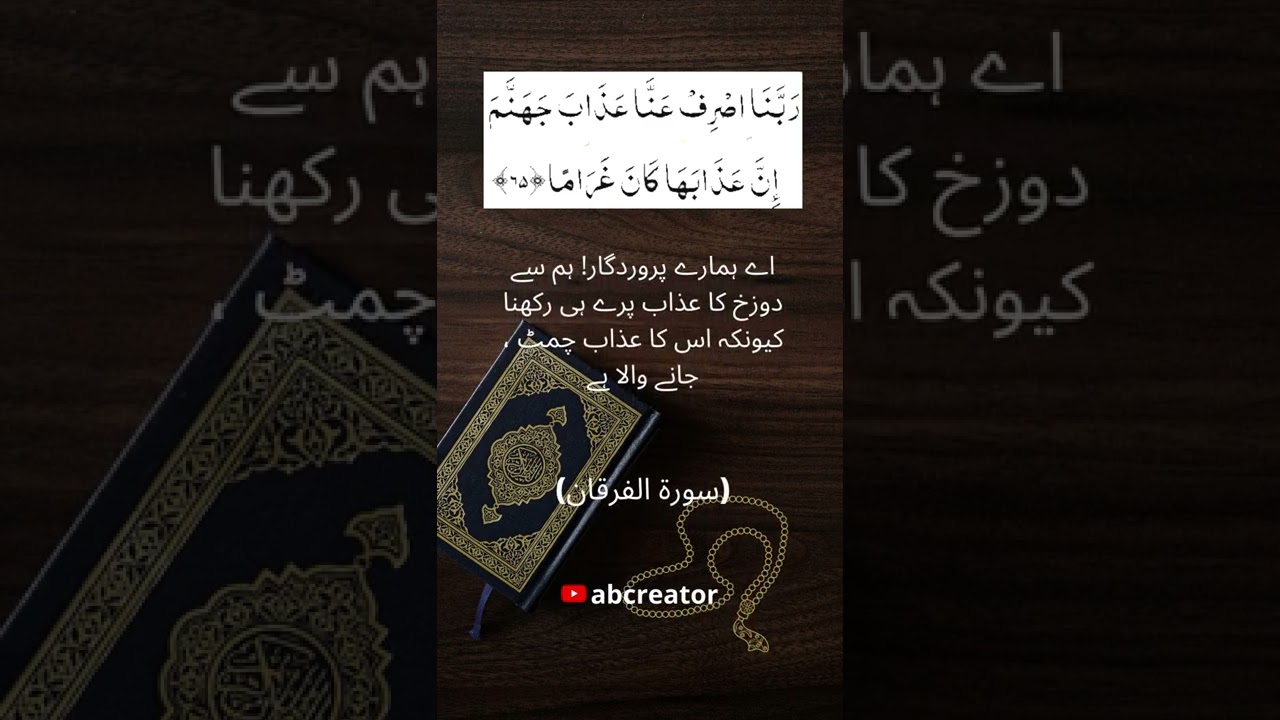 رَبَّنَا اصْرِفْ عَنَّا عَذَابَ جَهَنَّمَ
إِنَّ عَذَابَهَا كَانَ غَرَامًا ﴿٦٥﴾
اے ہمارے پروردگار! ہم سے
دوزخ کا عذاب پرے ہی رکھنا
کیونکہ اس کا عذاب چمٹ ،
جانے والا ہے
(سورة الفرقان)
abcreator